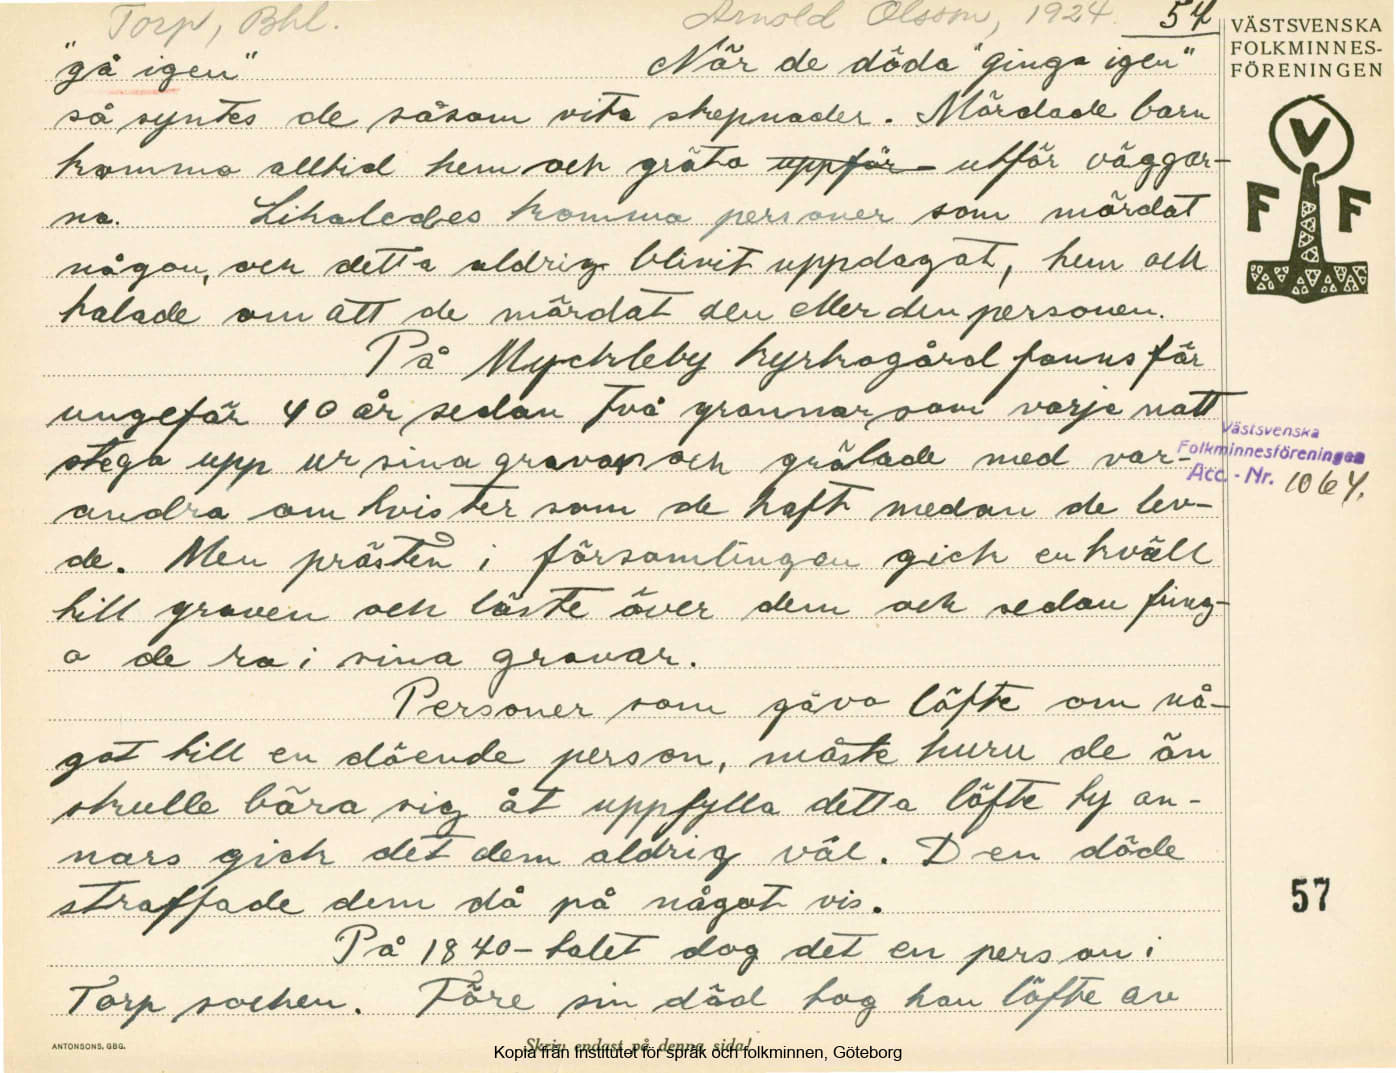 Torp, Bhl. Arnold Olsson, 1924. 54
VÄSTSVENSKA
FOLKMINNES-
FÖRENINGEN
"gå igen" När de döda "ginga igen"
så syntes de såsom vita skepnader. Mördade barn
komma alltid hem och gråta uppför utför väggar-
na. Likaledes komma personer som mördat
någon, och detta aldrig blivit uppdagat, hem och
talade om att de mördat den eller den personen.
På Myckleby kyrkogård fanns för
ungefär 40 år sedan två grannar som varje natt
stego upp ur sina gravar och grälade med var-
andra om tvister som de haft medan de lev-
de. Men prästen i församlingen gick en kväll
till graven och läste över dem och sedan fing-
o de ro i sina gravar.
Personer som gåvo löfte om nå-
got till en döende person, måste huru de än
skulle bära sig åt uppfylla detta löfte ty an-
nars gick det dem aldrig väl. Den döde
straffade dem då på något vis.
På 1840-talet dog det en person i
Torp socken. Före sin död tog han löfte av
V
F F
Västsvenska
Folkminnesföreningen
Acc.-Nr. 1064.
57
ANTONSONS, GBG.
Skriv endast på denna sida!
Kopia från Institutet för språk och folkminnen, Göteborg